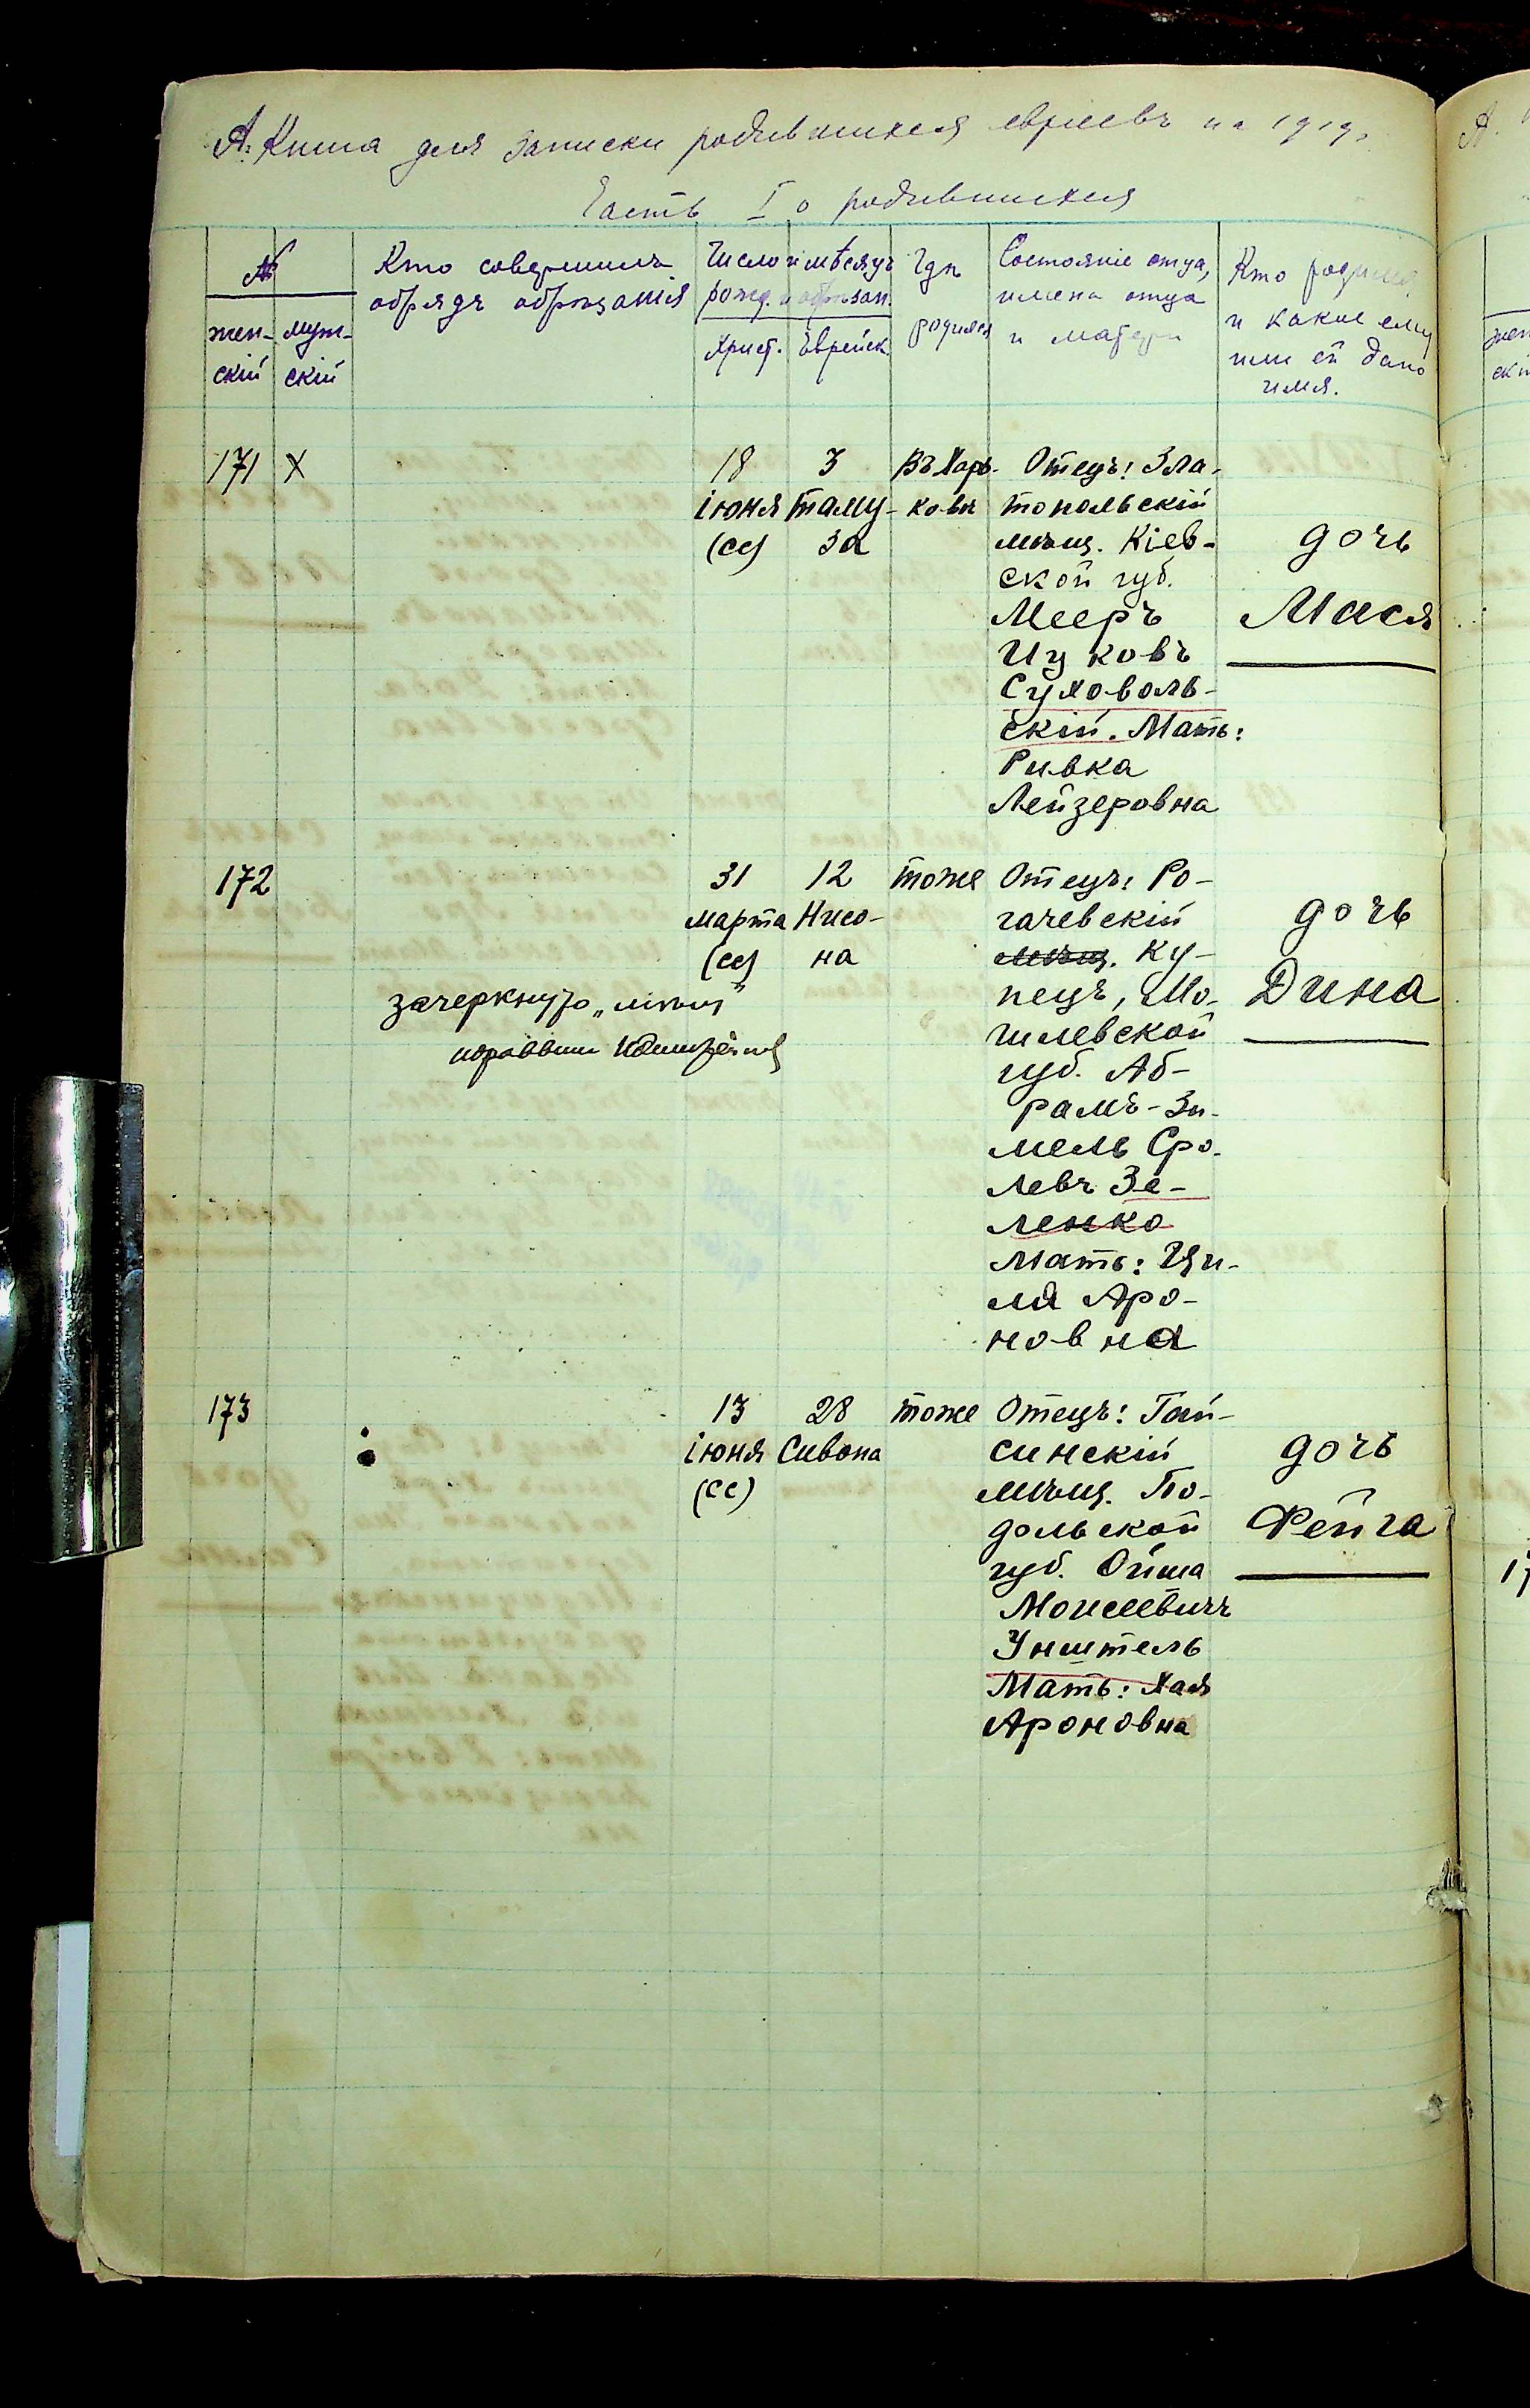 А. Книга для записки родившихся евреевъ на 1919 г.
Часть I о родившихся
№
жен-
скій
муж-
скій
Кто совершилъ
обрядъ обрѣзанія
Число и мѣсяцъ
рожд. и обрѣзан.
Христ. Еврейск.
Гдѣ
родился
Состояніе отца,
имена отца
и матери
Кто родился
и какое ему
или ей дано
имя.
171 X
18
іюня
(сс)
3
таму-
за
въ Харь-
ковѣ
Отецъ: Зла-
топольскій
мѣщ. Кіев-
ской губ.
Мееръ
Ицковъ
Суховоль-
скій. Мать:
Ривка
Лейзеровна
дочь
Мася
172
зачеркнуто „мѣщ"
31
марта
(сс)
12
Нисо-
на
тоже
Отецъ: Ро-
гачевскій
мѣщ. Ку-
пецъ, Мо-
гилевской
губ. Аб-
рамъ-Зи-
мель Сро-
левъ Зе-
ленко
Мать: Ци-
ля Аро-
новна
дочь
Дина
173
13
іюня
(сс)
28
Сивона
тоже
Отецъ: Гай-
синскій
мѣщ. По-
дольской
губ. Ойша
Моисеевичъ
Унштель
Мать: Хая
Ароновна
дочь
Фейга